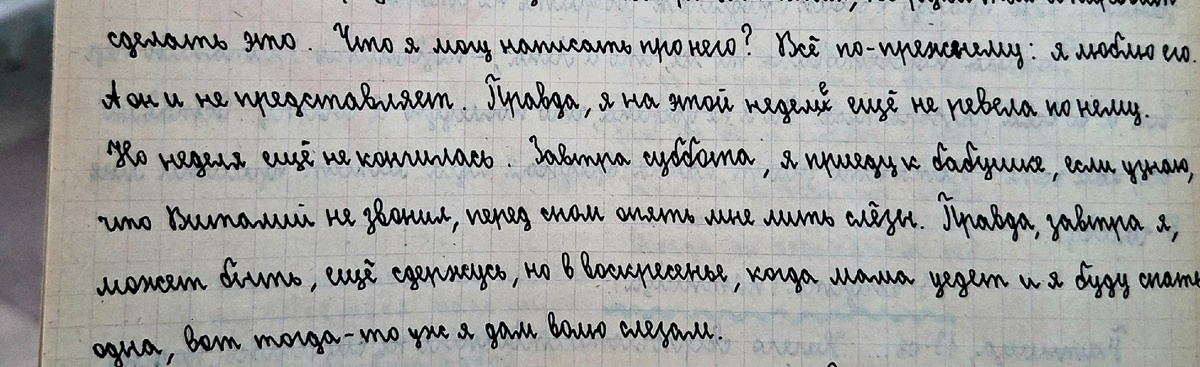 сделать это. Что я могу написать про него? Всё по-прежнему: я люблю его.
А он и не представляет. Правда, я на этой неделе ещё не ревела по нему.
Но неделя ещё не кончилась. Завтра суббота, я приеду к бабушке, если узнаю,
что Виталий не звонил, перед сном опять мне лить слёзы. Правда, завтра я,
может быть, ещё сдержусь, но в воскресенье, когда мама уедет и я буду спать
одна, вот тогда-то уж я дам волю слезам.